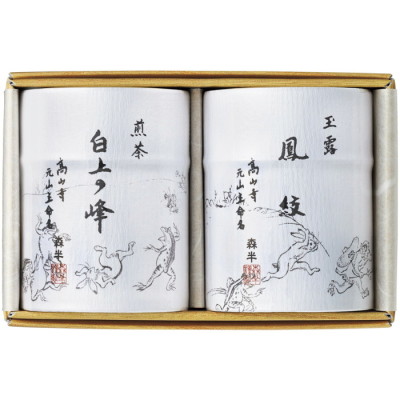 煎茶
白上の峰
高山寺
元山主命名
森半
玉露
鳳紋
高山寺
元山主命名
森半